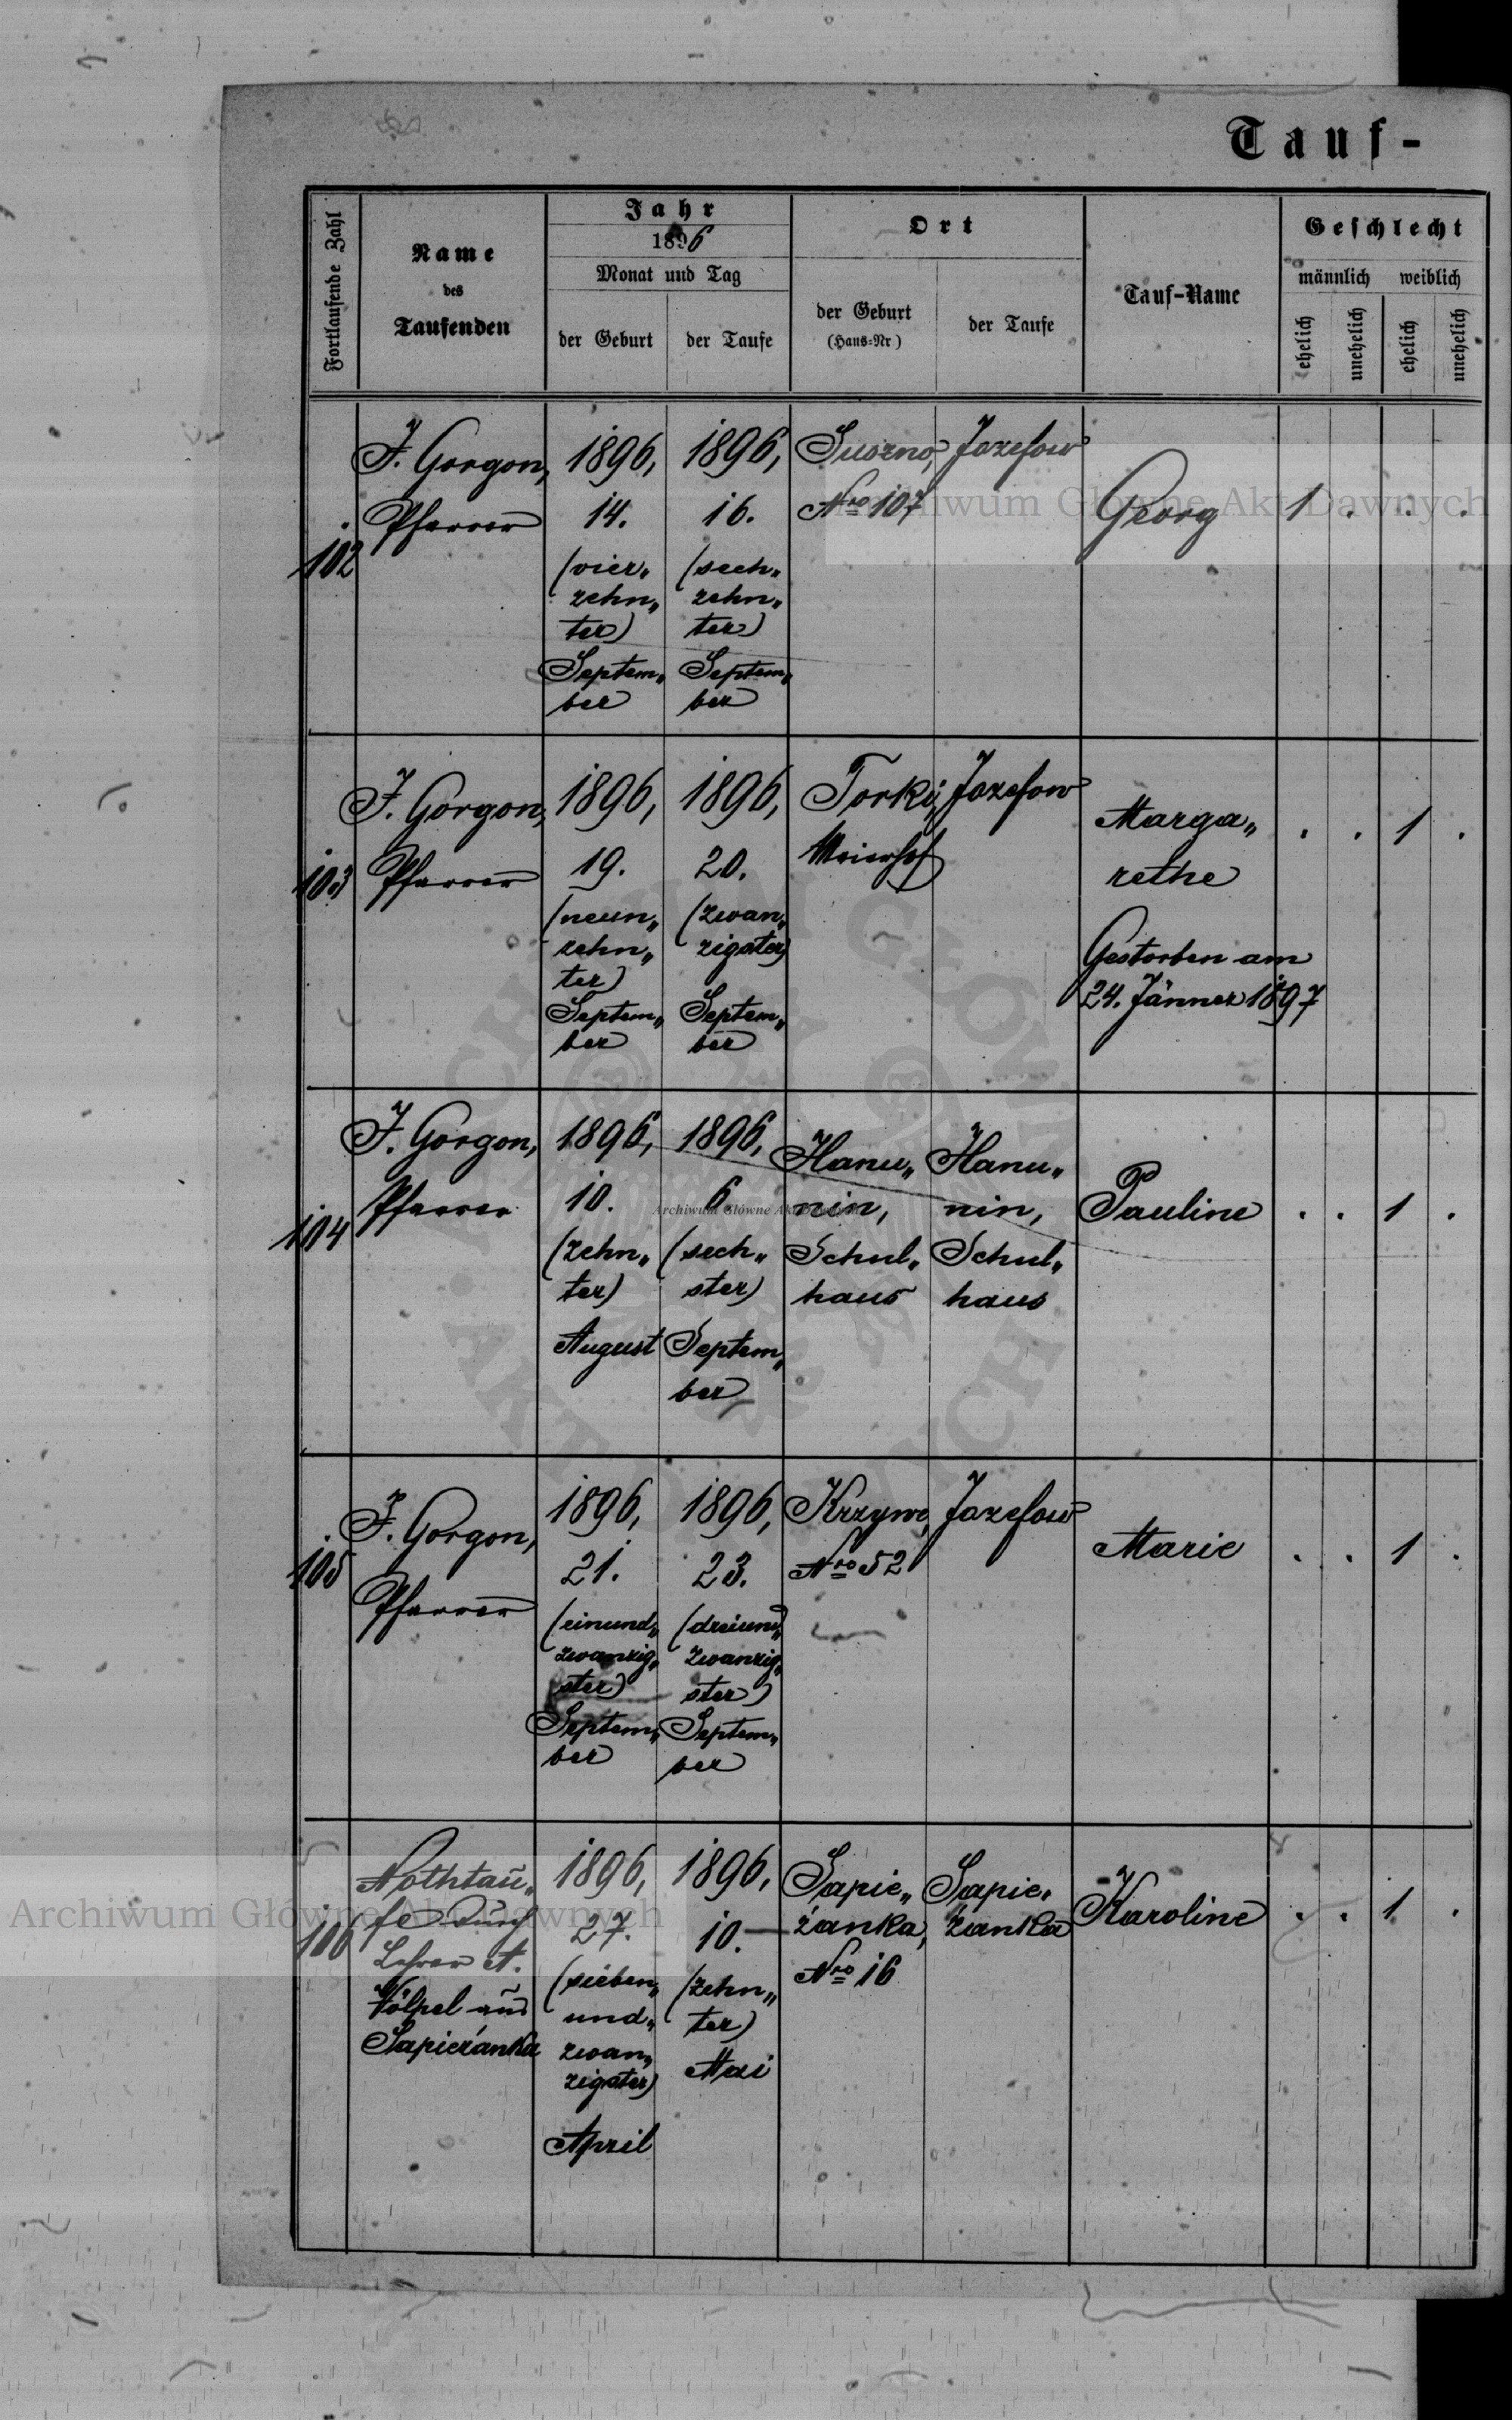 Tauf-
Fortlaufende Zahl
Name
des
Taufenden
Jahr
1896
Monat und Tag
der Geburt
der Taufe
Ort
der Geburt
(Haus-Nr)
der Taufe
Tauf-Name
Geschlecht
männlich weiblich
ehelich
unehelich
ehelich
unehelich
102
J. Gorgon,
Pfarrer
1896,
14.
(vier„
zehn„
ter)
Septem„
ber
1896,
16.
(sech„
zehn„
ter)
Septem„
ber
Suszno,
Nro 107
Jozefow
Georg
1 . . .
103
J. Gorgon,
Pfarrer
1896,
19.
(neun„
zehn„
ter)
Septem„
ber
1896,
20.
(zwan„
zigster)
Septem„
ber
Torki,
Meierhof
Jozefow
Marga„
rethe
Gestorben am
24. Jänner 1897
. . 1 .
104
J. Gorgon,
Pfarrer
1896,
10.
(zehn„
ter)
August
1896,
6
(sech„
ster)
Septem„
ber
Hanu„
nin,
Schul„
haus
Hanu„
nin,
Schul„
haus
Pauline
. . 1 .
105
J. Gorgon,
Pfarrer
1896,
21.
(einund„
zwanzig„
ster)
Septem„
ber
1896,
23.
(dreiund„
zwanzig„
ster)
Septem„
ber
Krzywe,
Nro 52
Jozefow
Marie
. . 1 .
106
Nothtau„
fe durch
Lehrer A.
Völpel aus
Sapieżanka
1896,
27.
(sieben„
und„
zwan„
zigster)
April
1896,
10.
(zehn„
ter)
Mai
Sapie„
żanka,
Nro 16
Sapie„
żanka
Karoline
. . 1 .
Archiwum Główne Akt Dawnych
Archiwum Główne Akt Dawnych
Archiwum Główne Akt Dawnych